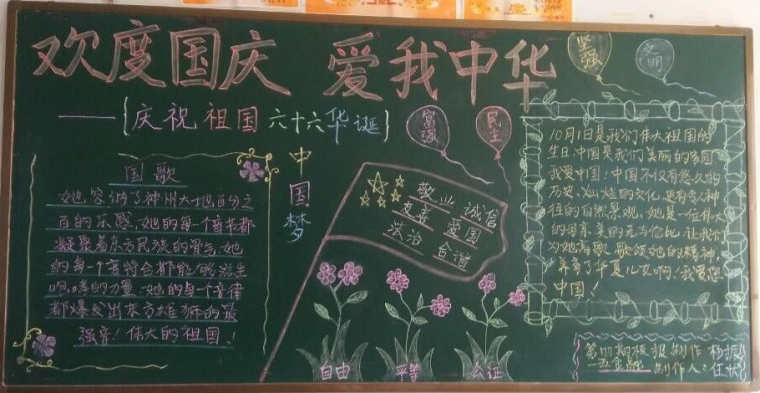 欢度国庆 爱我中华
——{庆祝祖国六十六华诞}
坚强
文明
富强
民主
中国梦
国歌
她容纳了神州大地百分之
百的乐感，她的每一个音节都
凝聚着东方民族的骨气，她
的每一个音符合都能
的力量，她的每一个音律
都爆发出东方雄狮的最
强音！伟大的祖国！
敬业 诚信
友善 爱国
法治 合谐
自由 平等 公证
10月1日是我们伟大祖国的
生日，中国是我们美丽的家园
我爱中国：中国不仅有悠久的
历史，灿烂的文化，还有令人神
往的自然景观，她是一位伟大
的母亲，美的无与伦比，让我们
为她高歌，歌颂她的精神，
养育了华夏儿女啊，我爱您
中国！